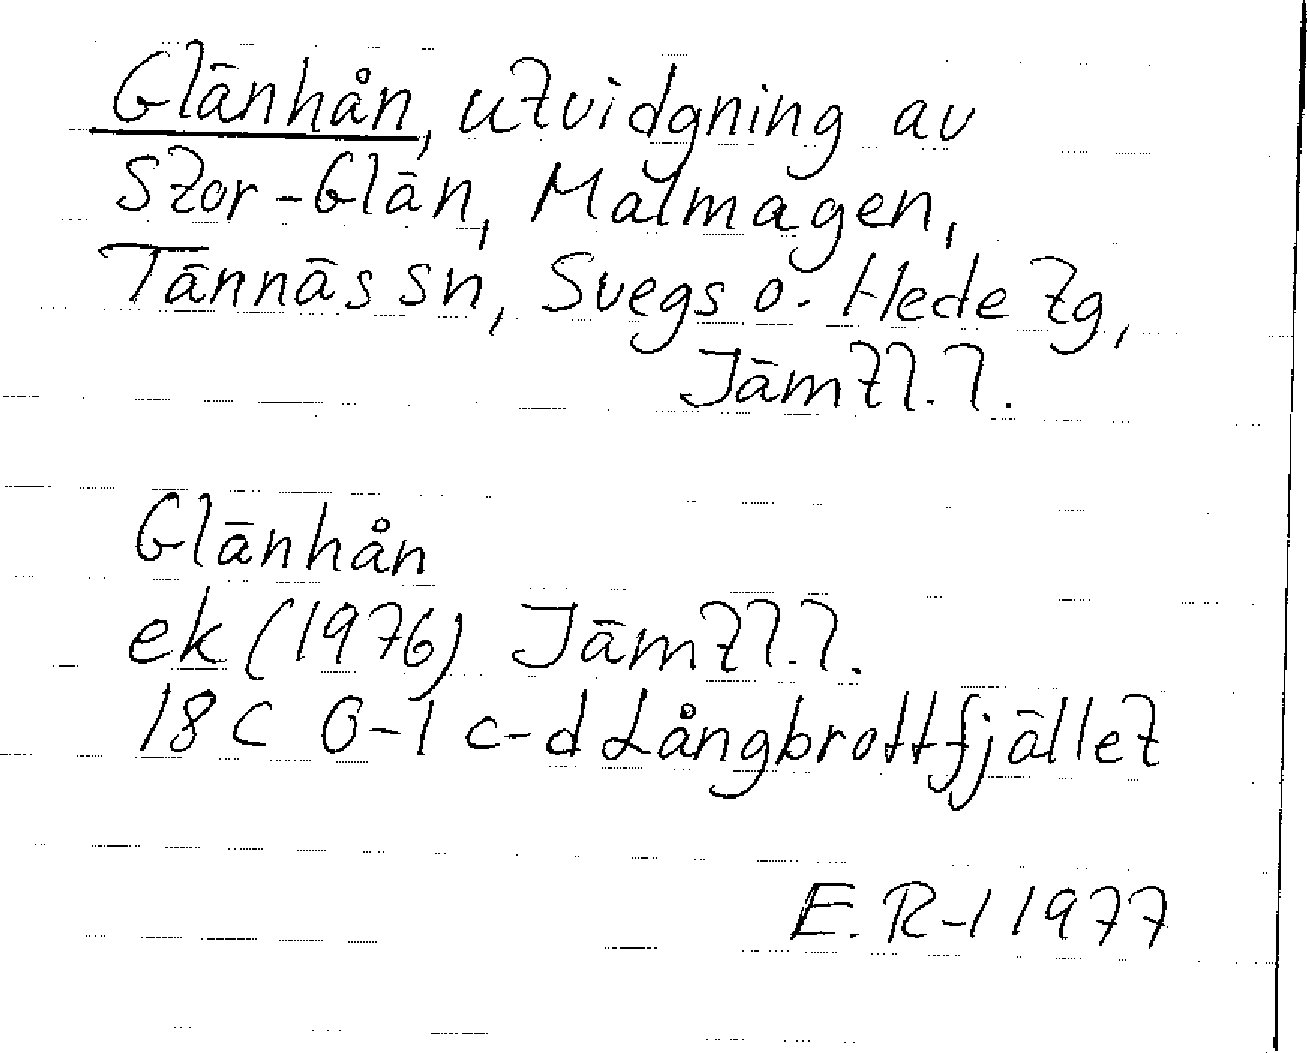 Glänhån, utvidgning av
Stor-Glän, Malmagen,
Tännäs sn, Svegs o. Hede tg,
Jämtl. l.
Glänhån
ek (1976) Jämtl. l.
18 C 0-1 c-d Långbrottfjället
E. R-l 1977